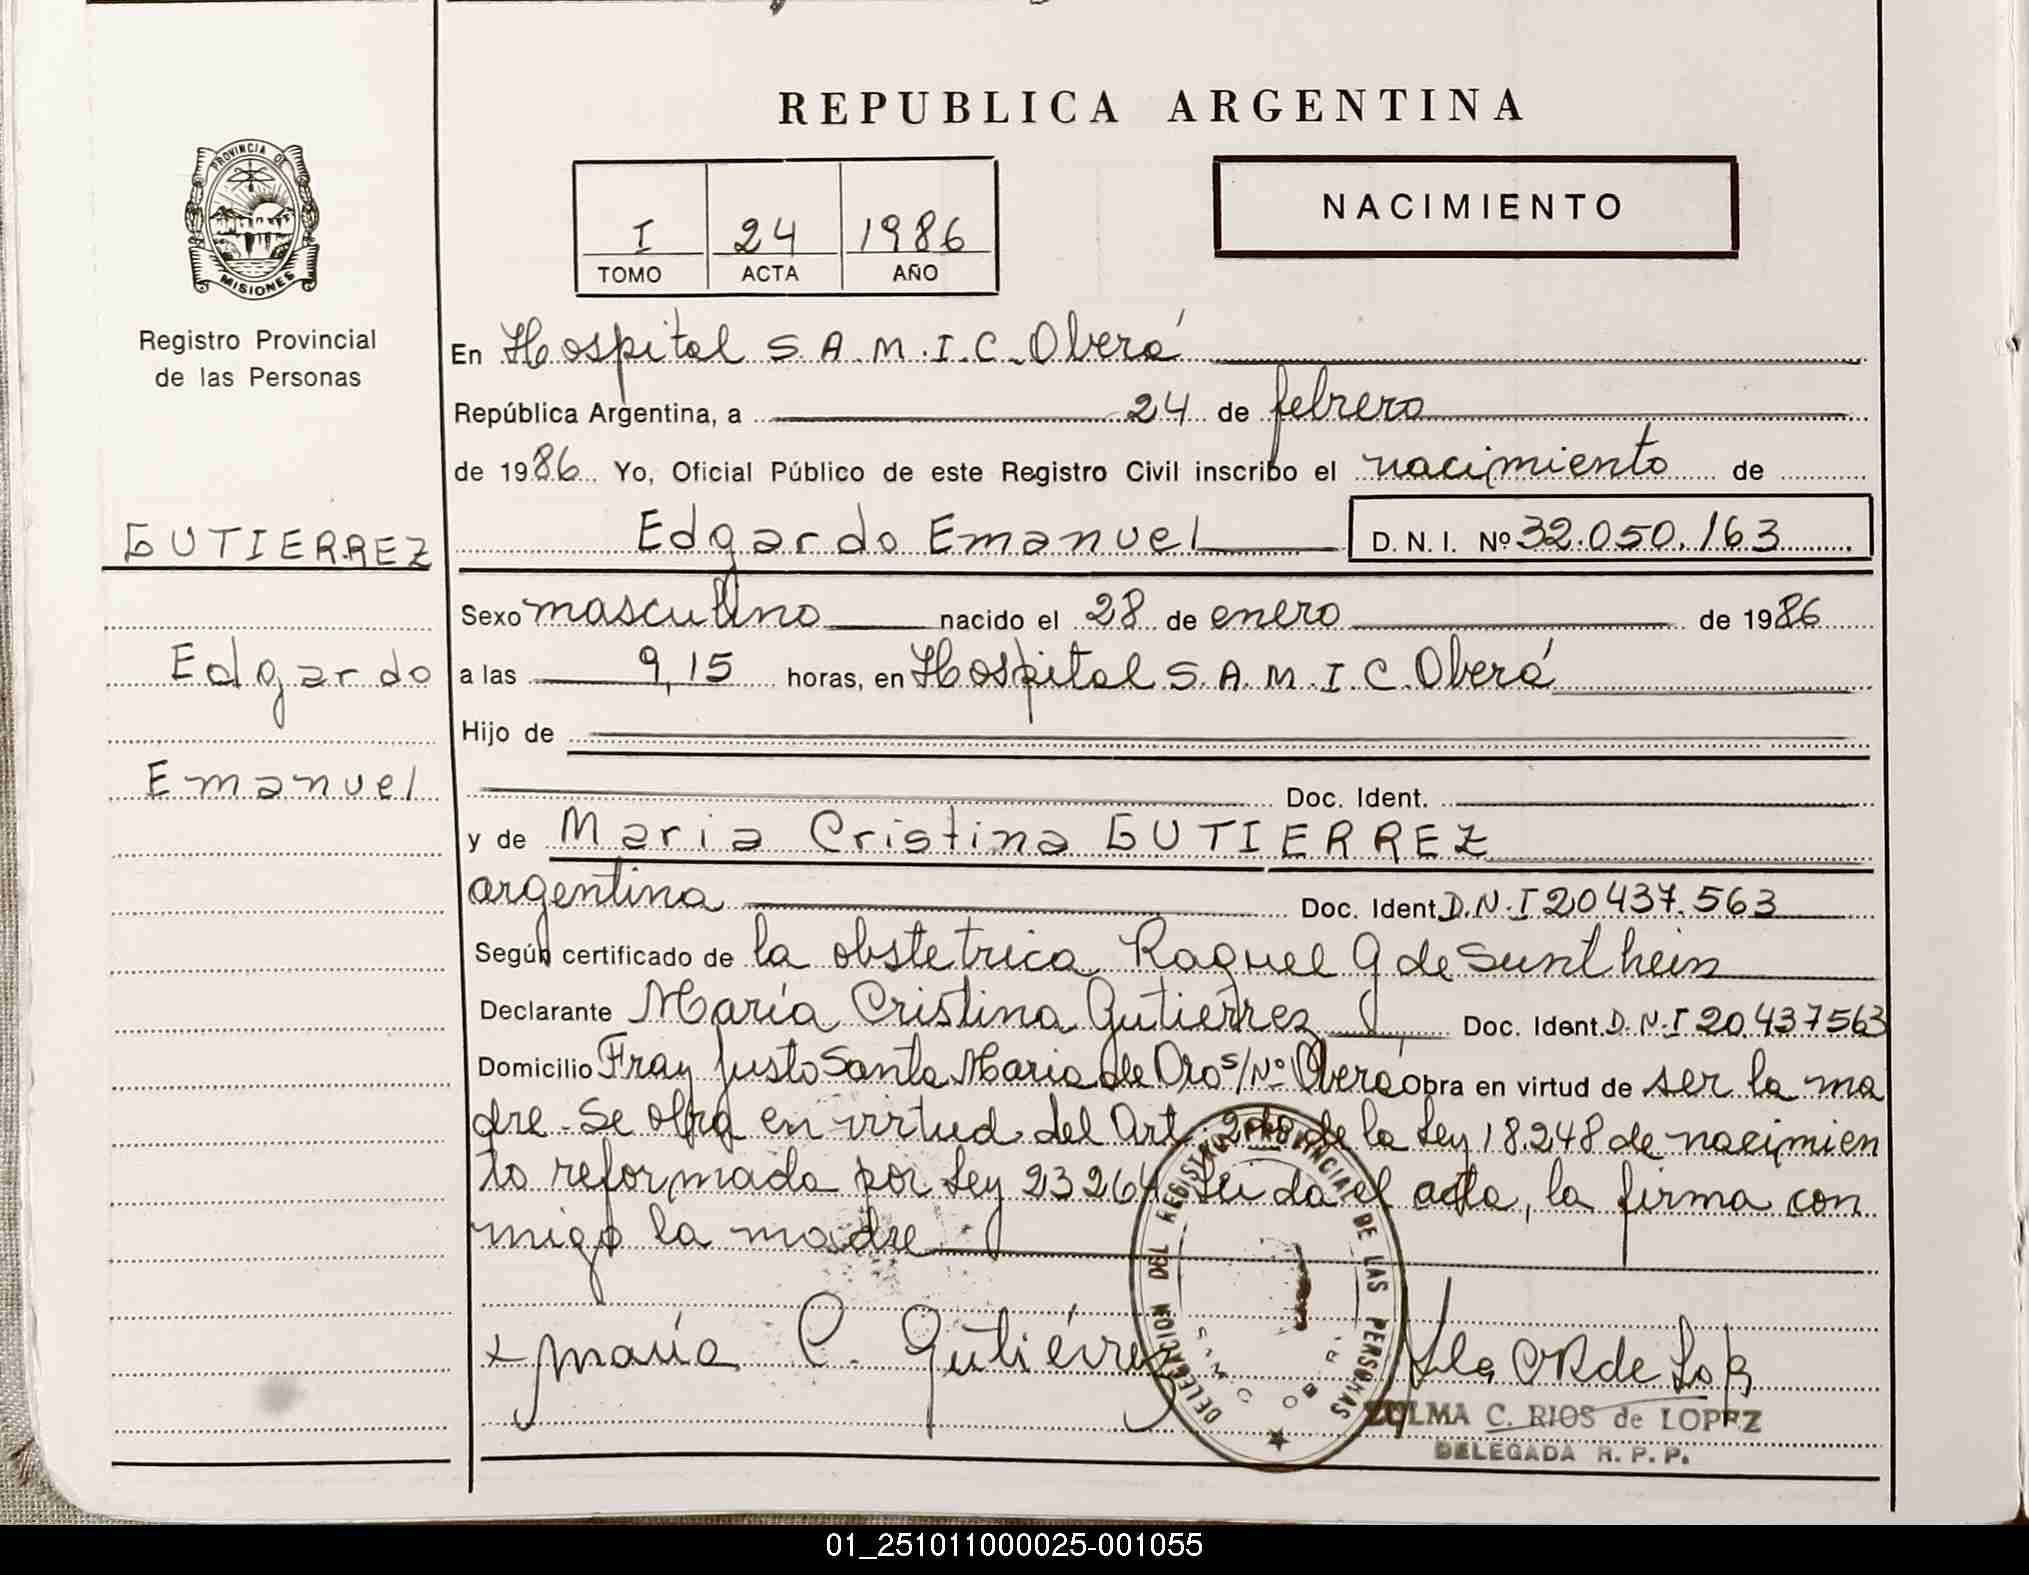 REPUBLICA ARGENTINA
PROVINCIA DE
MISIONES
Registro Provincial
de las Personas
I 24 1986
TOMO ACTA AÑO
NACIMIENTO
En Hospital S.A.M.I.C. Oberá
República Argentina, a 24 de febrero
de 1986 Yo, Oficial Público de este Registro Civil inscribo el nacimiento de
GUTIERREZ
Edgardo Emanuel D. N. I. Nº 32.050.163
Sexo masculino nacido el 28 de enero de 1986
Edgardo
a las 9,15 horas, en Hospital S.A.M.I.C. Oberá
Hijo de
Emanuel
Doc. Ident.
y de Maria Cristina GUTIERREZ
argentina Doc. Ident. D.N.I 20437.563
Según certificado de la obstetrica Raquel G de Sunthein
Declarante María Cristina Gutierrez Doc. Ident. D.N.I 20.437563
Domicilio Fray Justo Santa Maria de Oro s/Nº Oberá Obra en virtud de ser la ma
dre. Se obra en virtud del Art. 2do de la Ley 18.248 de nacimien
to reformada por Ley 23264. Leida el acta, la firma con
migo la madre
DELEGACION DEL REGISTRO PROVINCIAL DE LAS PERSONAS
+ María C. Gutiérrez
ZULMA C. RIOS de LOPEZ
DELEGADA R. P. P.
01_251011000025-001055